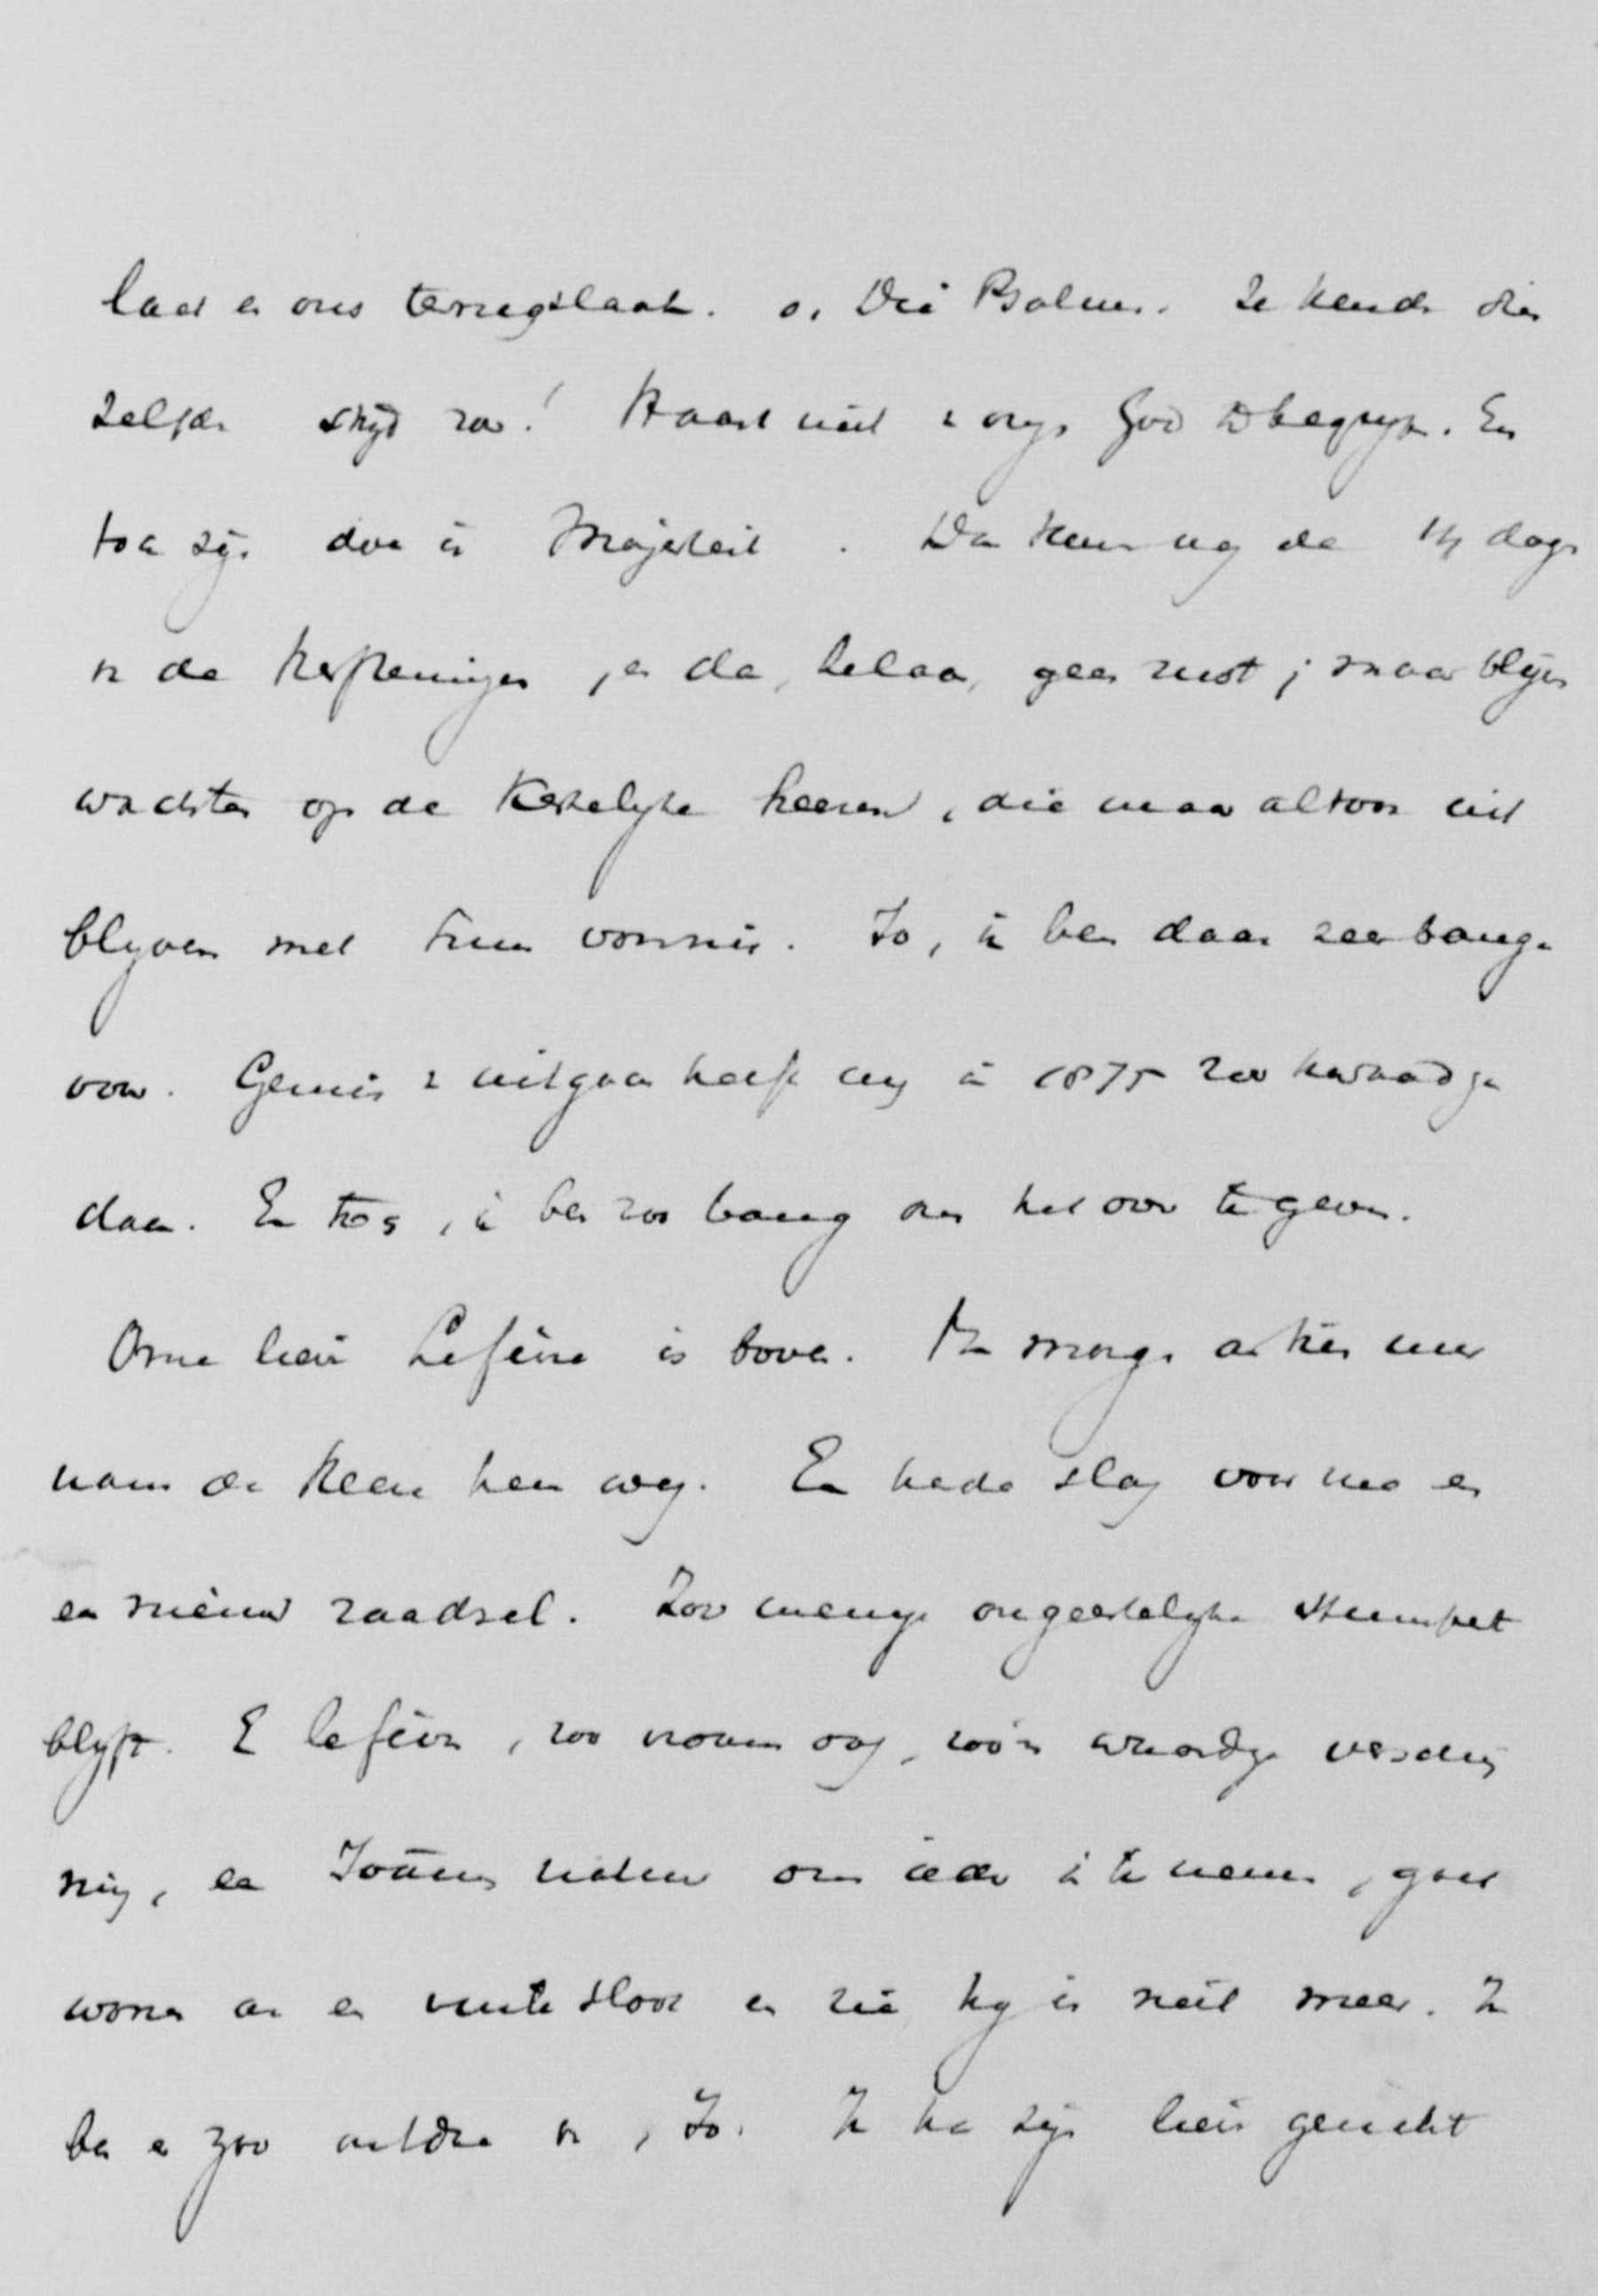 laat en ons terugslaat. O, Die Psalmen. Ze kenden dien
zelfden strijd zoo! Haast niet God te begrijpen. En
toch zijn doen is Majesteit. Dan kwamen de dagen
de Kerspeningen en dan, helaas, geen rust; maar blijven
wachten op de Kerkelijke heeren, die maar altoos uit
blyven met hun vonnis. Jo, ik ben daar zeer bange
voor. Gemis uitgaan heeft my in 1875 zoo kwaad ge
daan. En toch, ik ben zoo bang om het over te geven.
Onze lieve Lefèvre is boven. Van morgen tien uur
nam de Heere hem weg. Een harde slag voor mij en
een nieuw raadsel. Zoo menige ongeestelijke stumpert
blyft. En Lefèvre, zoo vroom oog, zóó'n waardige verschij
ning, een om ieder in te nemen, gaat
wonen aan een vunze sloot en zie hij is niet meer. Ik
ben er zoo ontdaan van, Jo. Ik heb zijn lieve gezicht